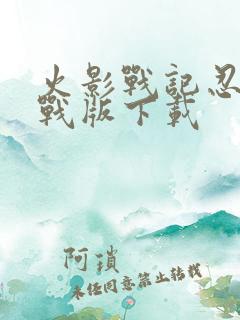 火影戰記忍
戰版下載
阿瑣
未经同意禁止转载